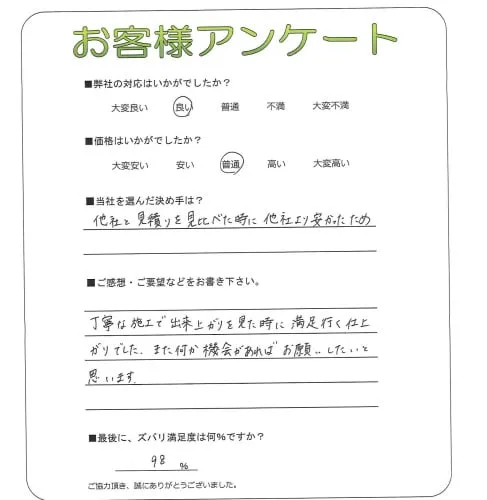 お客様アンケート
■弊社の対応はいかがでしたか?
大変良い 良い 普通 不満 大変不満
■価格はいかがでしたか?
大変安い 安い 普通 高い 大変高い
■当社を選んだ決め手は?
他社と見積りを見比べた時に他社より安かったため
■ご感想・ご要望などをお書き下さい。
丁寧な施工で出来上がりを見た時に満足行く仕上
がりでした。また何か機会があればお願いしたいと
思います。
■最後に、ズバリ満足度は何%ですか?
98 %
ご協力頂き、誠にありがとうございました。